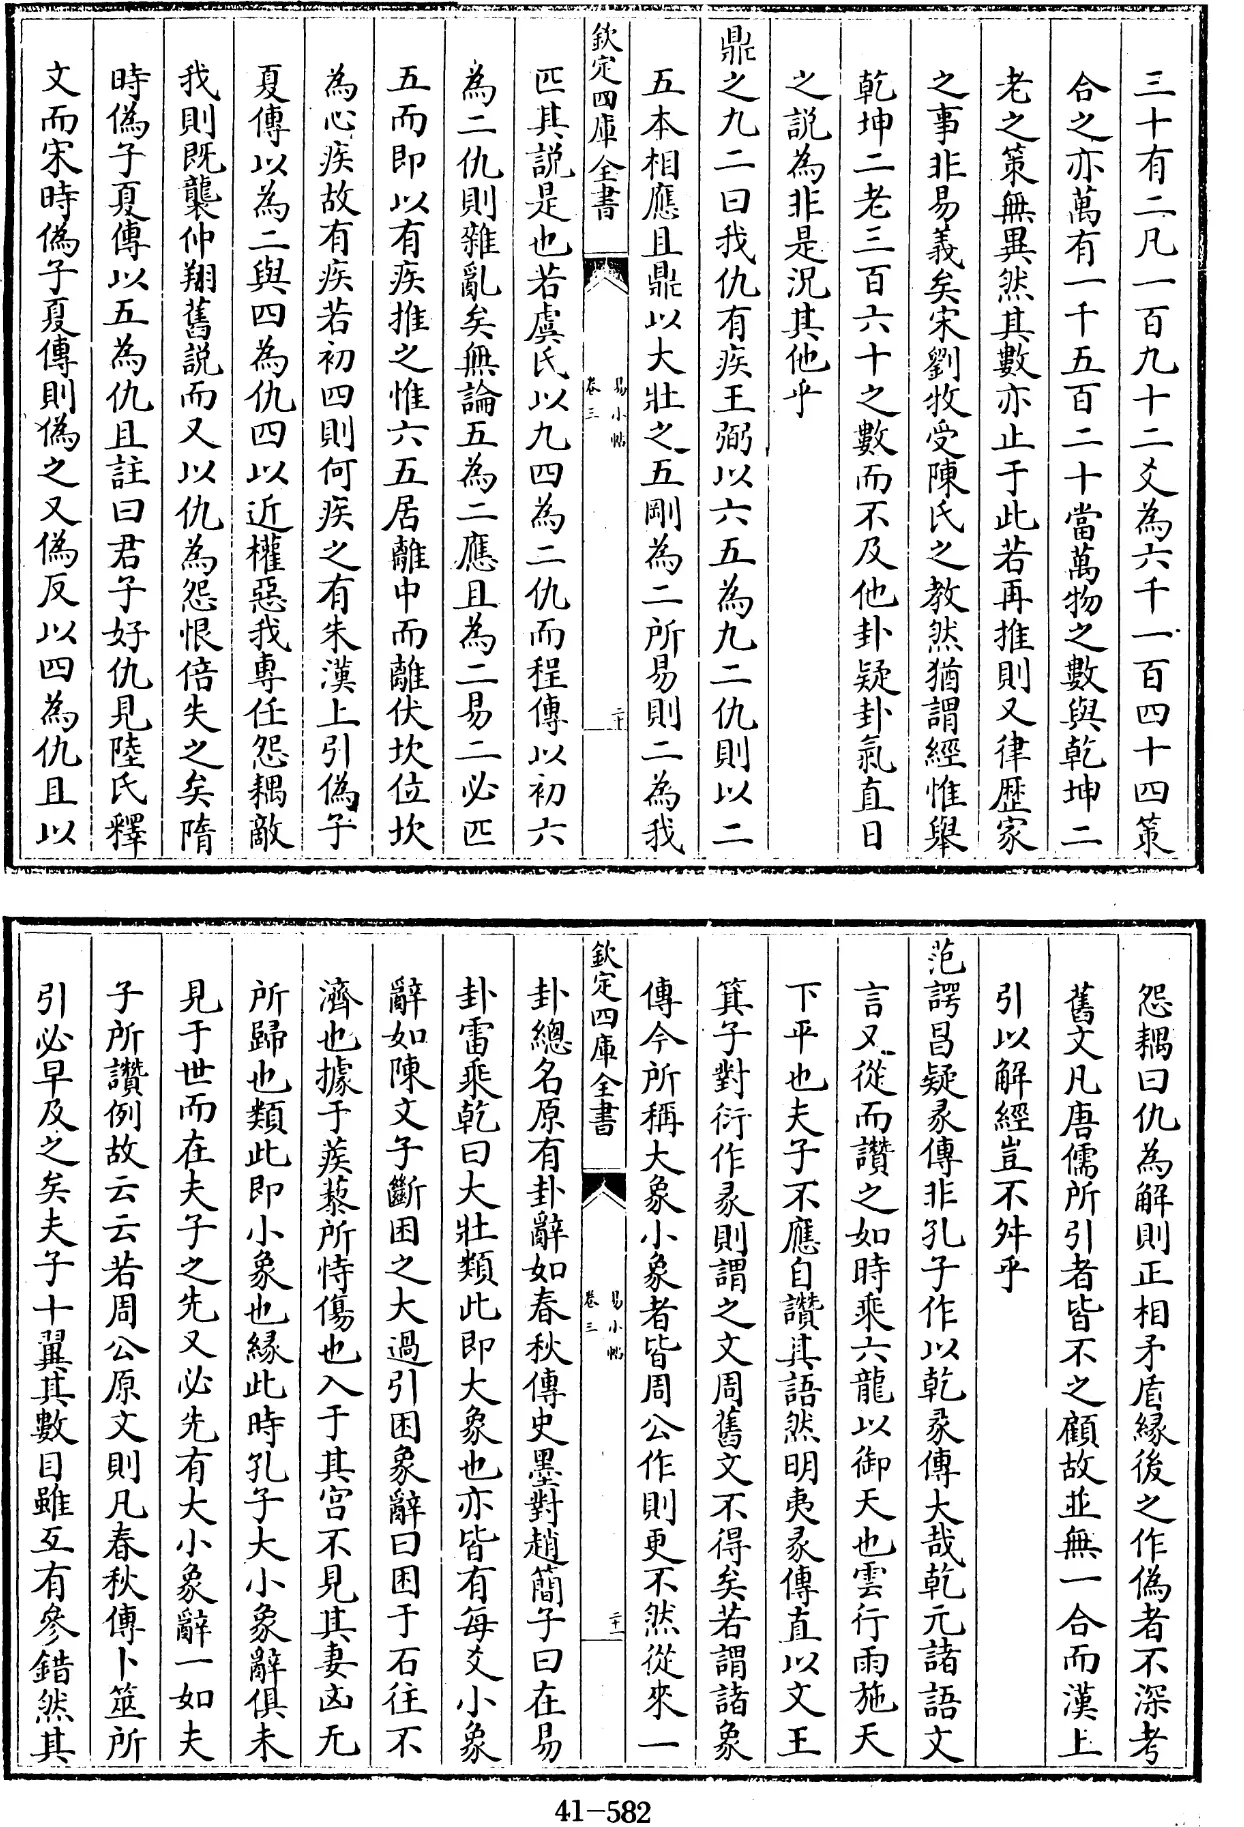 三十有二凡一百九十二爻為六千一百四十四策
合之亦萬有一千五百二十當萬物之數與乾坤二
老之策無異然其數亦止于此若再推則又律歴家
之事非易義矣宋劉牧受陳氏之教然猶謂經惟舉
乾坤二老三百六十之數而不及他卦疑卦氣直日
之説為非是況其他乎
鼎之九二曰我仇有疾王弼以六五為九二仇則以二
五本相應且鼎以大壯之五剛為二所易則二為我
欽定四庫全書
易小帖
卷三
二十
匹其説是也若虞氏以九四為二仇而程傳以初六
為二仇則雜亂矣無論五為二應且為二易二必匹
五而即以有疾推之惟六五居離中而離伏坎位坎
為心疾故有疾若初四則何疾之有朱漢上引偽子
夏傳以為二與四為仇四以近權惡我專任怨耦敵
我則既襲仲翔舊説而又以仇為怨恨倍失之矣隋
時偽子夏傳以五為仇且註曰君子好仇見陸氏釋
文而宋時偽子夏傳則偽之又偽反以四為仇且以
怨耦曰仇為解則正相矛盾縁後之作偽者不深考
舊文凡唐儒所引者皆不之顧故並無一合而漢上
引以解經豈不舛乎
范諤昌疑彖傳非孔子作以乾彖傳大哉乾元諸語文
言又從而讚之如時乘六龍以御天也雲行雨施天
下平也夫子不應自讚其語然明夷彖傳直以文王
箕子對衍作彖則謂之文周舊文不得矣若謂諸象
傳今所稱大象小象者皆周公作則更不然從來一
欽定四庫全書
易小帖
卷三
二十一
卦總名原有卦辭如春秋傳史墨對趙簡子曰在易
卦雷乘乾曰大壯類此即大象也亦皆有每爻小象
辭如陳文子斷困之大過引困象辭曰困于石往不
濟也據于蒺藜所恃傷也入于其宫不見其妻凶无
所歸也類此即小象也縁此時孔子大小象辭俱未
見于世而在夫子之先又必先有大小象辭一如夫
子所讚例故云云若周公原文則凡春秋傳卜筮所
引必早及之矣夫子十翼其數目雖互有參錯然其
41-582